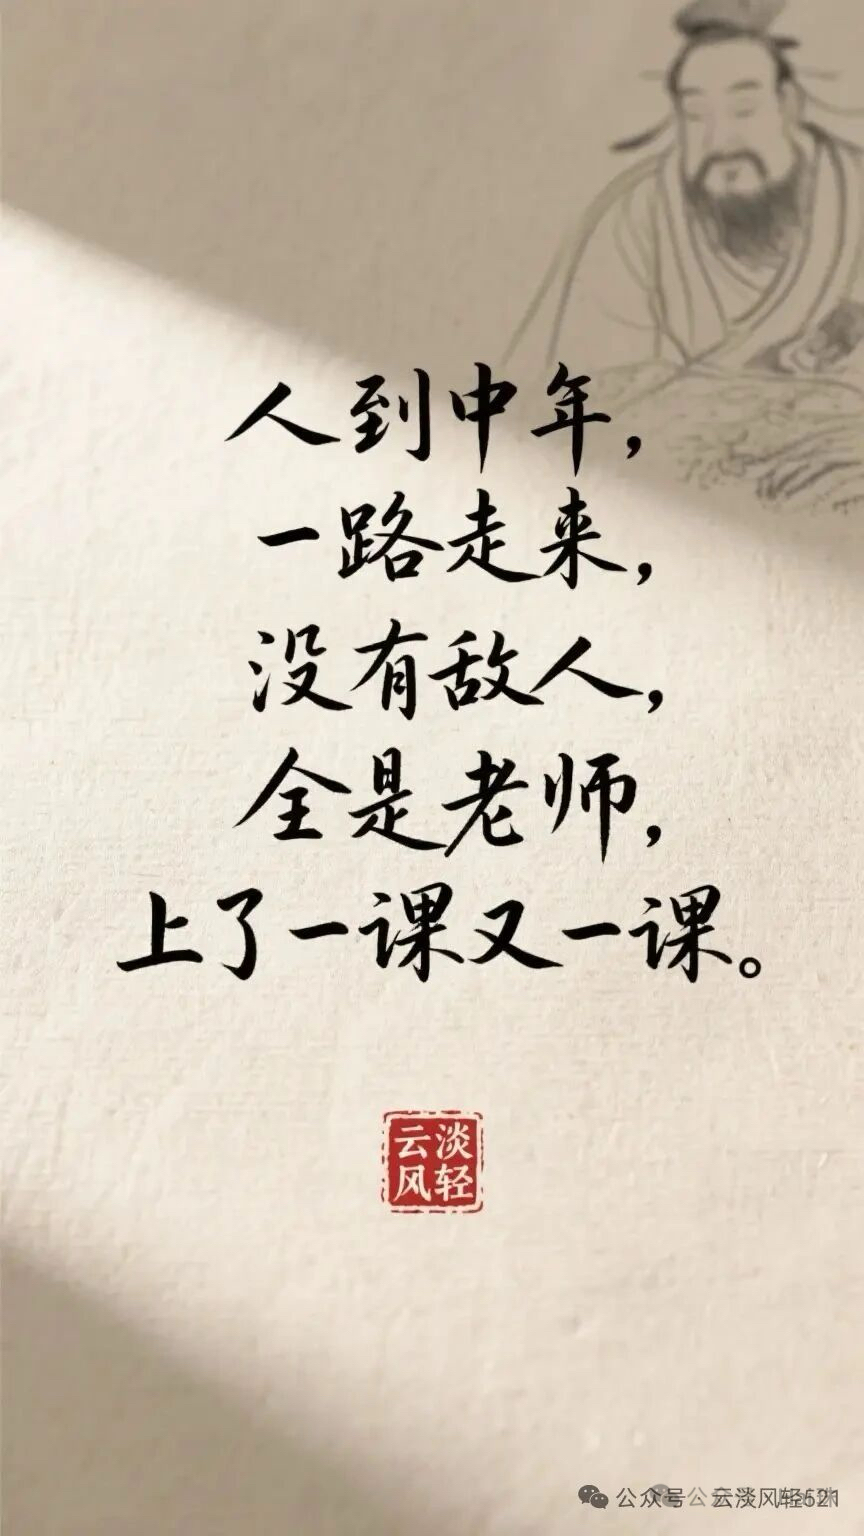 人到中年，
一路走来，
没有敌人，
全是老师，
上了一课又一课。
云淡
风轻
公众号 · 云淡风轻521